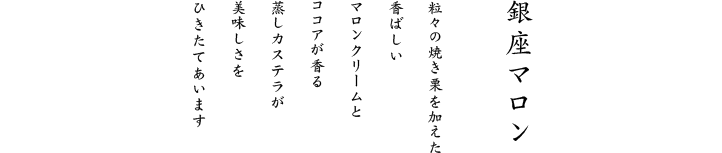 銀座マロン
粒々の焼き栗を加えた
香ばしい
マロンクリームと
ココアが香る
蒸しカステラが
美味しさを
ひきたてあいます